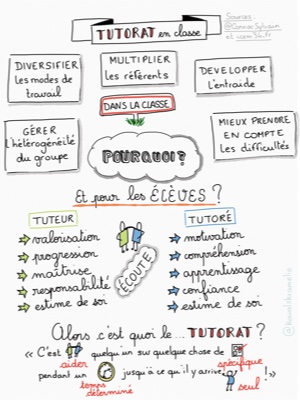 TUTORAT en classe
Sources :
@ConnacSylvain
DIVERSIFIER
les modes de
travail
MULTIPLIER
les référents
DEVELOPPER
l'entraide
DANS LA CLASSE
GÉRER
l'hétérogénéité
du groupe
MIEUX PRENDRE
EN COMPTE
les difficultés
POURQUOI ?
Et pour les ÉLÈVES ?
TUTEUR
valorisation
progression
maîtrise
responsabilité
estime de soi
ÉCOUTE
TUTORÉ
motivation
compréhension
apprentissage
confiance
estime de soi
Alors c'est quoi le... TUTORAT ?
« C'est aider quelqu'un sur quelque chose de spécifique
pendant un temps déterminé jusqu'à ce qu'il y arrive seul ! »